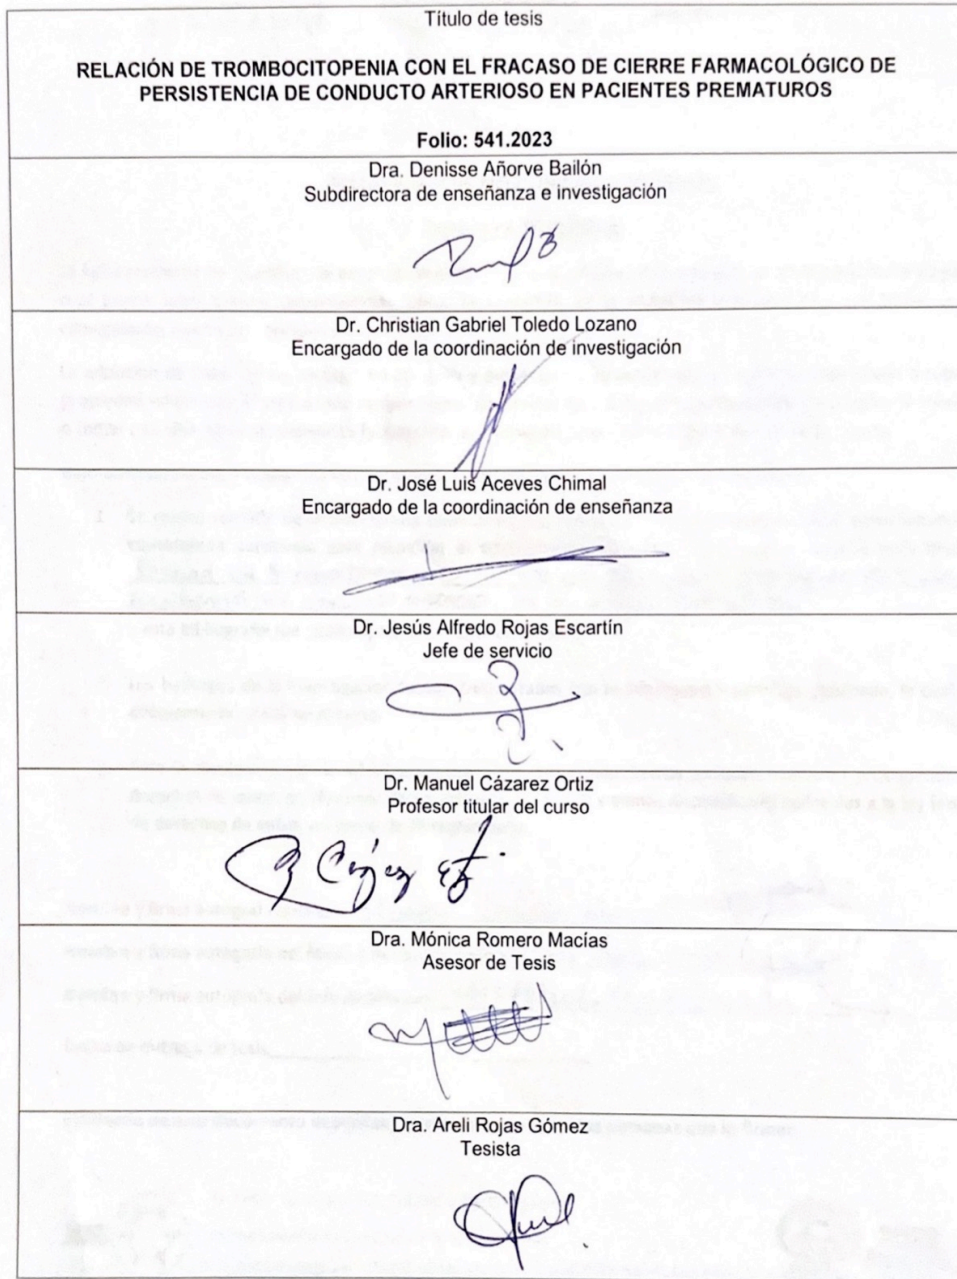 Título de tesis
RELACIÓN DE TROMBOCITOPENIA CON EL FRACASO DE CIERRE FARMACOLÓGICO DE
PERSISTENCIA DE CONDUCTO ARTERIOSO EN PACIENTES PREMATUROS
Folio: 541.2023
Dra. Denisse Añorve Bailón
Subdirectora de enseñanza e investigación
Dr. Christian Gabriel Toledo Lozano
Encargado de la coordinación de investigación
Dr. José Luis Aceves Chimal
Encargado de la coordinación de enseñanza
Dr. Jesús Alfredo Rojas Escartín
Jefe de servicio
Dr. Manuel Cázarez Ortiz
Profesor titular del curso
Dra. Mónica Romero Macías
Asesor de Tesis
Dra. Areli Rojas Gómez
Tesista